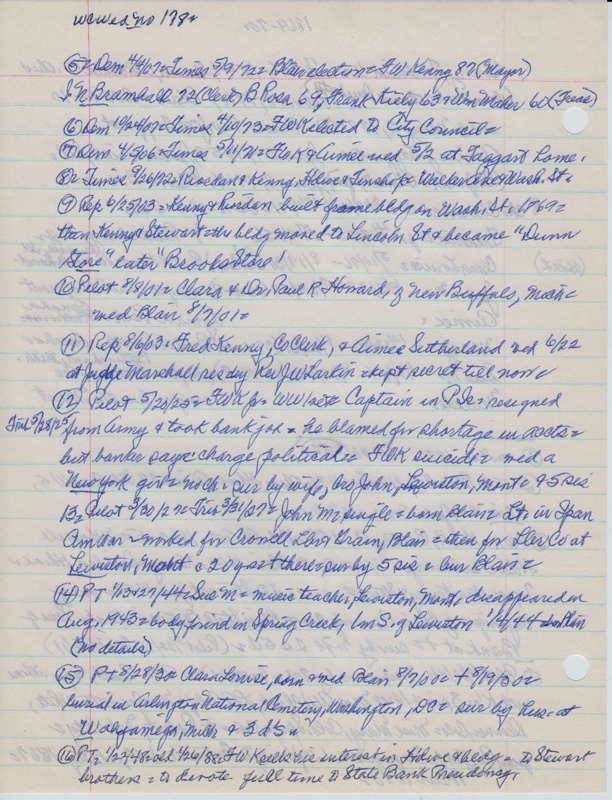 wcwed no 178=
⑤= Dem 4/4/07= Times 5/9/72= Blair election= FW Kenny 87 (Mayor)
I. N Bramhall 72 (Clerk) B Rosa 69, Frank 63= Wm Maher 60 (Treas)
⑥ Dem 10/24/07= Times 4/10/73= FWK elected to City Council=
⑦ Dem 4/5/06= Times 5/11/71= FWK & Aimee wed 5/2 at Taggart home.
8= Times 9/26/72= Riordan & Kenny, Hdwe & Tinshop= Walker & Wash. St=
⑨ Rep 6/25/03= Kenny & Riordan built frame bldg on Wash. St 1869=
then Kenny & Stewart= the bldg moved to Lincoln St & became "Dunn
Store" later "Brooks Store"
⑩ Pilot 8/8/01= Clara & Dr. Paul R Howard, of New Buffalo, Mich=
wed Blair 8/7/01=
⑪ Rep 8/6/03= Fred Kenny, Co Clerk, & Aimee Sutherland wed 6/22
at Judge Marshall res by Rev JW Larkin= kept secret till now=
⑫ Pilot 5/20/25= FWK Jr= WW1 vet= Captain in P.I.= resigned
Trib 5/28/25 from army & took bank job= he blamed for shortage in accts=
but banker says charge political= FWK suicide= wed a
New York girl= no ch= sur by wife, bro John, Lewiston, Mont= & 5 sis
13= Pilot 3/30/27= Trib 3/31/27= John M= single= born Blair= Lt. in Span
Am War= worked for Crowell Lbr & Grain, Blair= then for Lbr Co at
Lewiston, Mont= 20 yrs there= sur by 5 sis= bur Blair=
⑭ PT 1/13 & 27/44= Sue M= music teacher, Lewiston, Mont= disappeared in
Aug, 1943= body found in Spring Creek, 1m S. of Lewiston 1/4/44
(no details)
⑮ Pt 8/28/30= Clara Louise, born & wed Blair 8/7/01= + 8/19/30=
buried in Arlington National Cemetery, Washington, DC= sur by hus= at
Mich & 3 d S=
⑯ PT= 1/22/48= old 1/26/88= FW K sells his interest in Hdwe & bldg= to Stewart
brothers= to devote full time to State Bank Presidency.